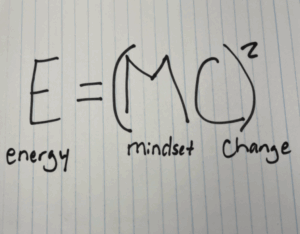 E = (MC)²
energy mindset change